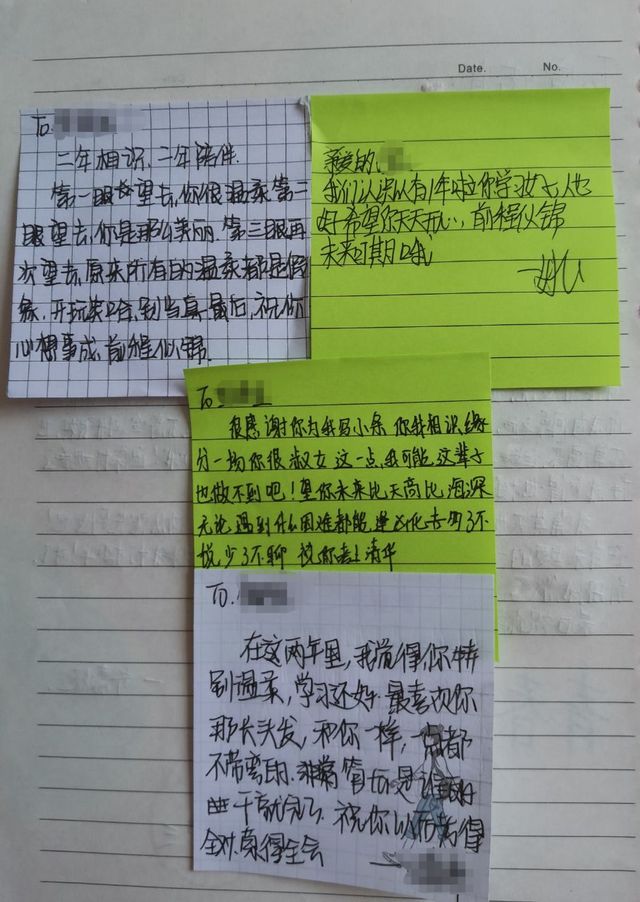 Date.
No.
To.
二年相识,二年陪伴.
第一眼望去,你很温柔,第二
眼望去,你是那么美丽.第三眼再
次望去,原来所有的温柔都是假
象.开玩笑哈,别当真.最后,祝你
心想事成,前程似锦.
亲爱的
我们认识以有1年啦你学习好人也
好希望你天天开心,前程似锦
未来可期哦
To
很感谢你为我写小条 你我相识缘
分一场你很淑女 这一点,我可能这辈子
也做不到吧!望你未来比天高比海深
无论遇到什么困难都能 多了不
说少了不聊 祝你考上清华
To.
在这两年里,我觉得你特
别温柔,学习还好.最喜欢你
那长头发,和你一样,一点都
不带弯的.非常 是谁
干就完了.祝你以后
全对.蒙得全会